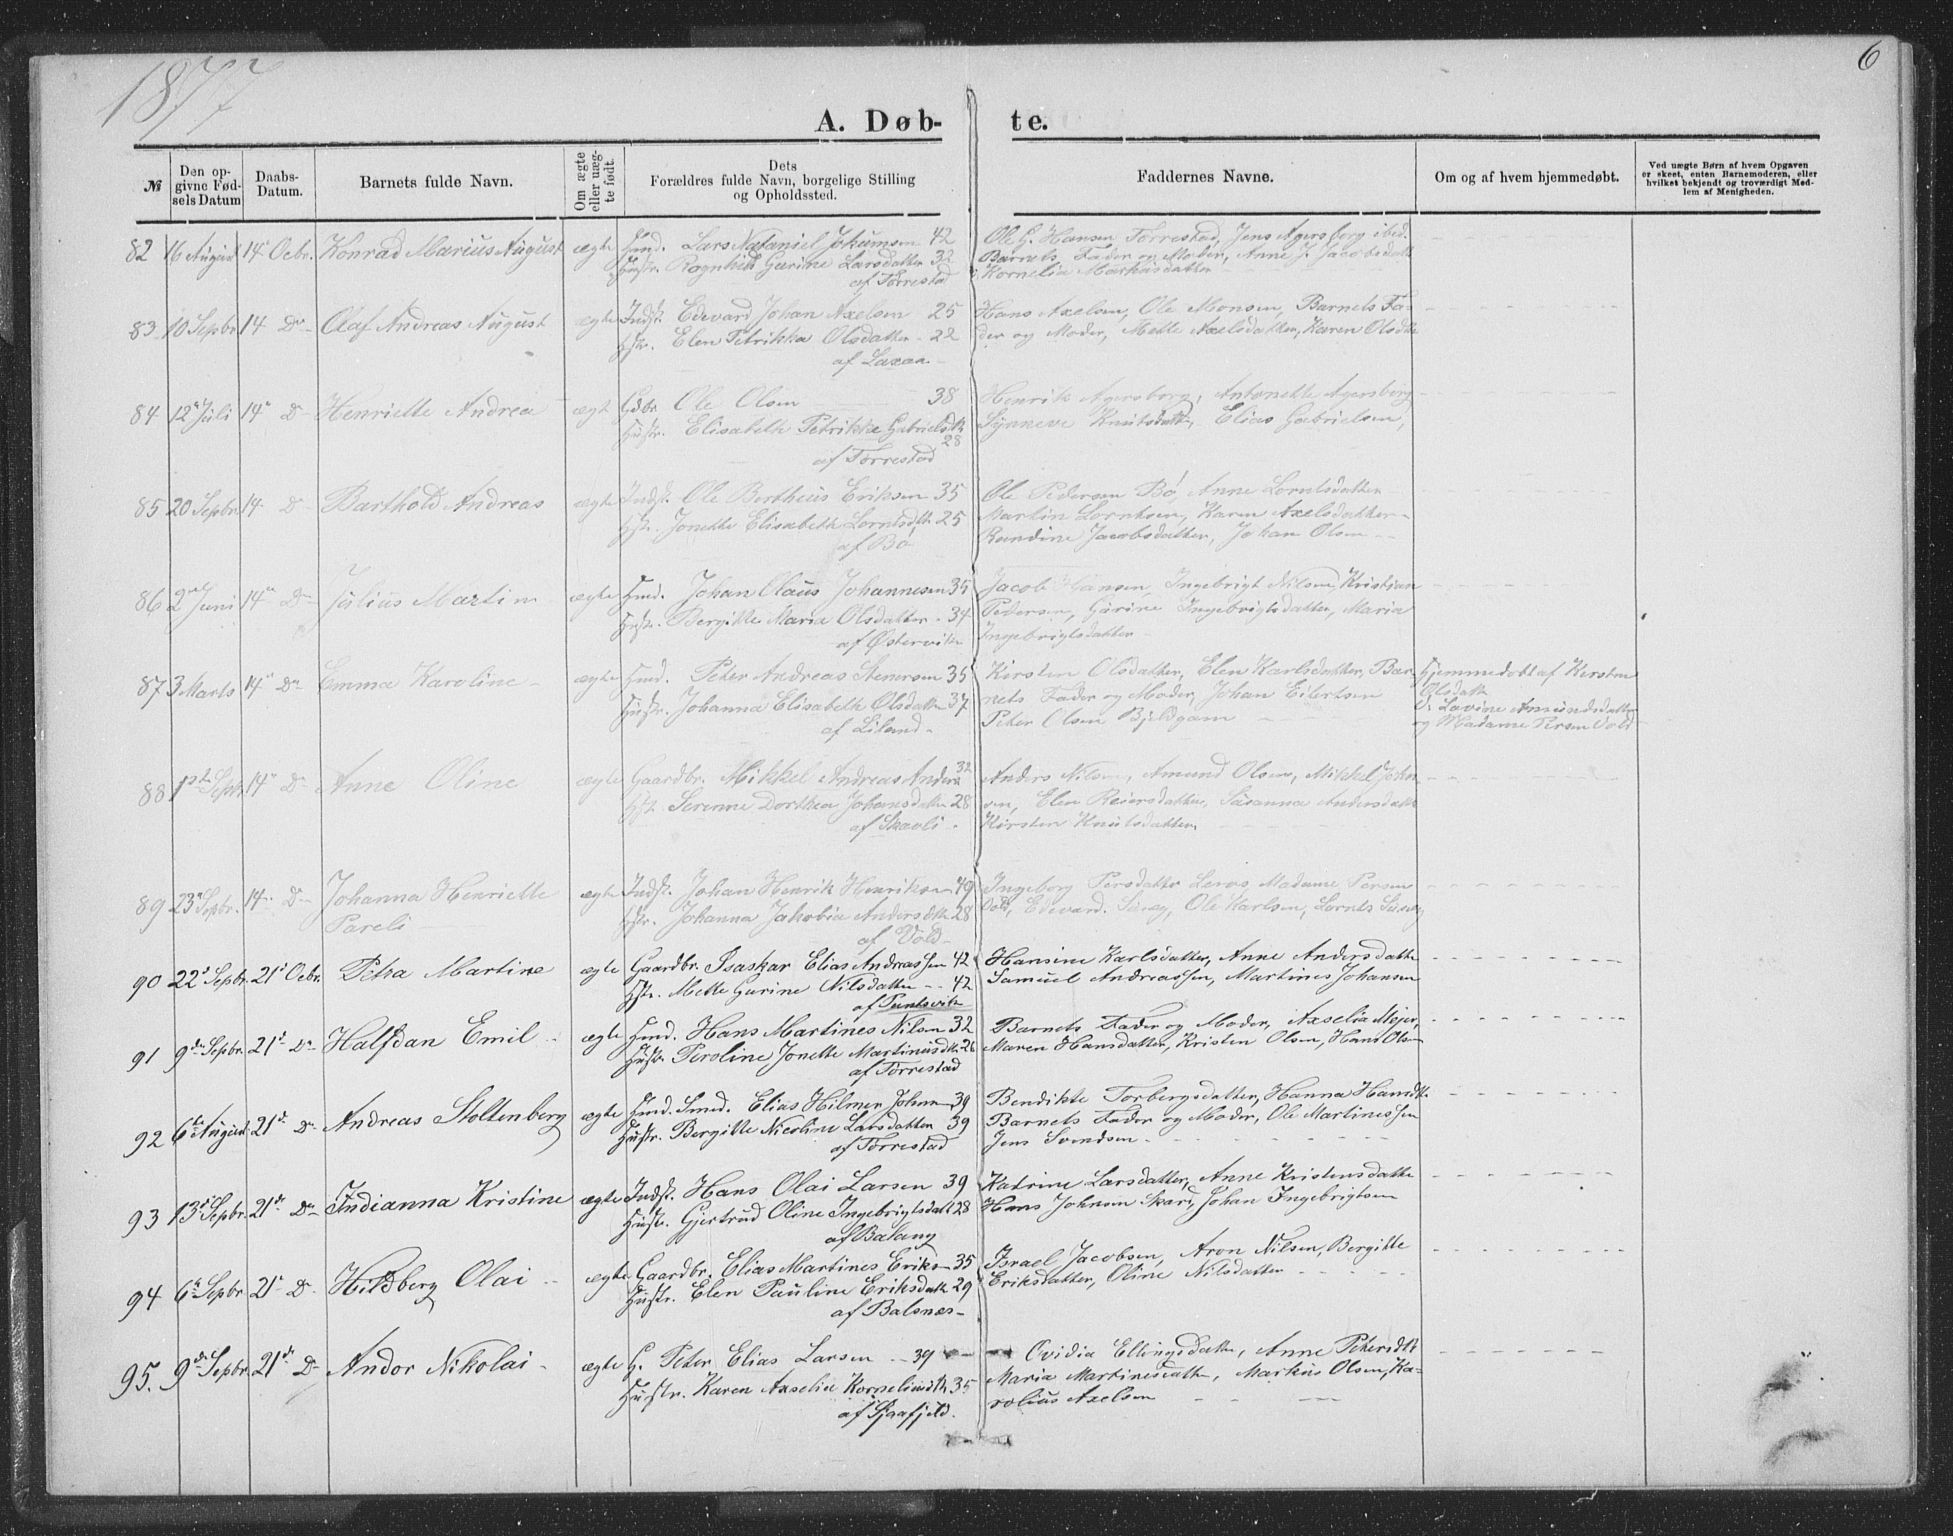 1877
6
A. Døbte.
№
Den opgivne Fødselsdatum
Daabs-Datum.
Barnets fulde Navn.
Om ægte eller uægte født.
Dets Forældres fulde Navn, borgelige Stilling og Opholdssted.
Faddernes Navne.
Om og af hvem hjemmedøbt.
Ved uægte Børn af hvem Opgaven er skeet, enten Barnemoderen, eller hvilket bekjendt og troværdigt Medlem af Menigheden.
82 16 August 14 Ocbr. Konrad Marius August ægte Hmd. Lars Nataniel Johnsen 42
Hustr. Ragnhild Gurine Larsdatter 32
af Torrestad
Ole G. Hansen Torrestad, Jens Agersborg ibid.
Barnets Fader og Moder, Anne J. Jacobsdatt
Kornelia Markusdatter
83 10 Sepbr 14 Do Olaf Andreas August ægte Indst. Edevard Johan Axelsen 25
Hstr. Elen Petrikka Olsdatter 22
af Laxaa
Hans Axelsen, Ole Monsen, Barnets Fa-
der og Moder, Mette Axelsdatter, Karen Olsdtr
84 12 Juli 14 D Henriette Andrea ægt Gdbr. Ole Olsen 38
Hustr. Elisabeth Petrikka Gabrielsdtr
28
af Torrestad
Henrik Agersborg, Antonette Agersborg
Synneve Knutsdatter, Elias Gabrielsen,
85 20 Sepbr 14 D Barthold Andreas ægte Indst. Ole Bertheus Eriksen 35
Hstr. Jonette Elisabeth Lorntsdtr 25
af Bø
Ole Pedersen Bø, Anne Lorntsdatter
Martin Lorntsen, Karen Axelsdatter
Randine Jacobsdatter, Johan Olsen
86 2 Juni 14 D Julius Martin ægte Hmd. Johan Olaus Johannesen 35
Hustr. Bergitte Maria Olsdatter 34
af Østervik
Jacob Hansen, Ingebrigt Nilsen, Kristian
Pedersen, Gurine Ingebrigtsdatter, Maria
Ingebrigtsdatter
87 3 Marts 14 D Emma Karoline ægte Hmd. Peter Andreas Stenersen 35
Hustr. Johanna Elisabeth Olsdatter 37
af Liland
Kirsten Olsdatter, Elen Karlsdatter, Bar-
nets Fader og Moder, Johan Eilertsen
Peter Olsen Bjeldgam
Hjemmedøbt af Kirsten
Olsdatt
Lovine Amundsdatter
og Madame Persen Vold
88 1ste Sepbr 14 D Anne Oline ægte Gaardbr. Mikkel Andreas Anders 32
Hst. Serenne Dorthea Johansdatter 28
af Skavli
Anders Nilsen, Amund Olsen, Mikkel John-
sen, Elen Reiersdatter, Susanna Andersdatt
Kirsten Knutsdatter,
89 23 Sepbr. 14 D Johanna Henriette
Pareli
ægte Indst. Johan Henrik Henriksen 49
Hstr. Johanna Jakobia Andersdtr 28
af Vold
Ingeborg Persdatter Lenes, Madame Persen
Vold, Edevard, Ole Karlsen, Lornts
90 22 Sepbr. 21 Ocbr. Petra Martine ægte Gaardbr. Isaskar Elias Andreassen 42
Hstr. Mette Gurine Nilsdatter 42
af Puntsvik
Hansine Karlsdatter, Anne Andersdatter
Samuel Andreassen, Martines Johansen
91 9de Sepbr. 21 D Halfdan Emil ægte Hmd. Hans Martines Nilsen 32
Hustr. Peroline Jonette Martinusdtr 26
af Torrestad
Barnets Fader og Moder, Axselia Mejer,
Maren Hansdatter, Kristen Olsen, Hans Olsen
92 6te August 21 D Andreas Stoltenberg ægte Hmd. Smed. Elias Hilmer Johnsen 39
Hustr. Bergitte Nicoline Larsdatter 39
af Torrestad
Bendikte Torbergsdatter, Hanna Hansdtr
Barnets Fader og Moder, Ole Martinessen
Jens Svendsen
93 13 Sepbr. 21 D Indianna Kristine ægte Indst. Hans Olai Larsen 39
Hustr. Gjertrud Oline Ingebrigtsdatt 28
af Balang
Katrine Larsdatter, Anne Kristensdatter
Hans Johnsen Skar, Johan Ingebrigtsen
94 6 Sepbr 21 D Hildberg Olai ægte Gaardbr. Elias Martines Eriks 35
Hustr. Elen Pauline Eriksdatt 29
af Balsnes
Israel Jacobsen, Aron Nilsen, Bergitte
Eriksdatter, Oline Nilsdatter
95. 9de Sepbr. 21 D Andor Nikolai ægte G. Peter Elias Larsen 39
Hustr. Karen Axselia Korneliusdtr 35
af Sjaafjeld.
Ovidia Ellingsdatter, Anne Petersdtr
Maria Martinesdatter, Markus Olsen, Ka-
rolius Axelsen